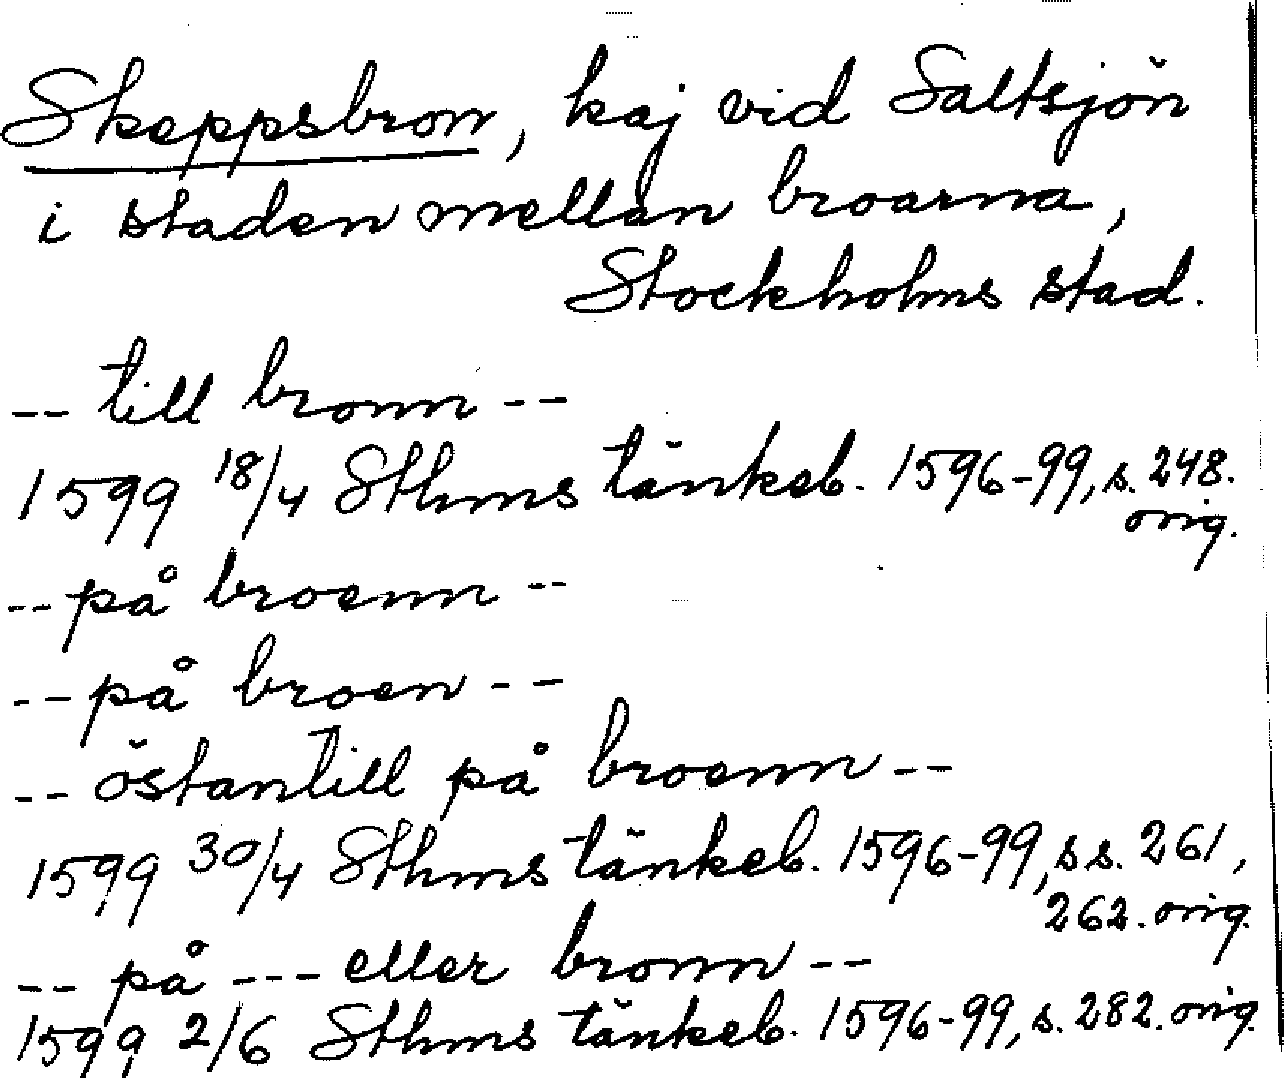 Skeppsbron, kaj vid Saltsjön
i staden mellan broarna,
Stockholms stad.
-- till bronn --
1599 18/4 Sthms tänkeb. 1596-99, s. 248.
orig.
-- på broenn --
-- på broen --
-- östantill på broenn --
1599 30/4 Sthms tänkeb. 1596-99, ss. 261,
262. orig.
-- på --- eller bronn --
1599 2/6 Sthms tänkeb. 1596-99, s. 282. orig.